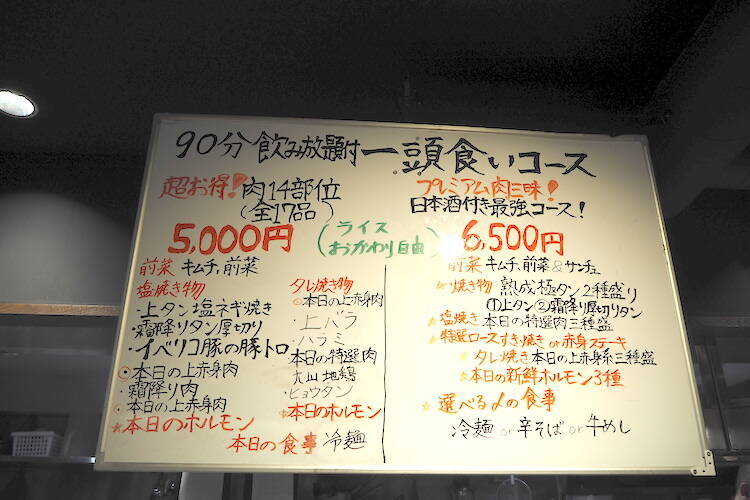 90分 飲み放題付 一頭食いコース
超お得! 肉14部位
(全17品)
5,000円
(ライス
おかわり自由)
プレミアム肉三昧!
日本酒付き最強コース!
6,500円
前菜 キムチ,前菜
塩焼き物
・上タン塩ネギ焼き
・霜降りタン厚切り
・イベリコ豚の豚トロ
◎本日の上赤身肉
・霜降り肉
◎本日の上赤身肉
☆本日のホルモン
タレ焼き物
◎本日の上赤身肉
・上バラ
・ハラミ
本日の特選肉
大山地鶏
・ヒョウタン
☆本日のホルモン
本日の食事 冷麺
前菜 キムチ,前菜&サンチュ
☆焼き物 熟成極タン2種盛り
①上タン②霜降厚切りタン
☆塩焼き 本日の特選肉三種盛
☆特選ロースすき焼き or 赤身ステーキ
☆タレ焼き 本日の上赤身系三種盛
☆本日の新鮮ホルモン3種
☆選べる〆の食事
冷麺 or 辛そば or 牛めし